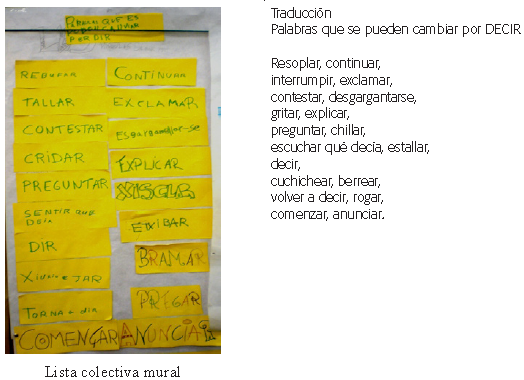 QUE ES
PER DIR
REBUFAR CONTINUAR
TALLAR EXCLAMAR
CONTESTAR
CRIDAR EXPLICAR
PREGUNTAR
SENTIR QUE
DEIA
ETXIBAR
DIR
BRAMAR
PREGAR
TORNA A DIR
COMENÇAR ANUNCIAR
Lista colectiva mural
Traducción
Palabras que se pueden cambiar por DECIR
Resoplar, continuar,
interrumpir, exclamar,
contestar, desgargantarse,
gritar, explicar,
preguntar, chillar,
escuchar qué decía, estallar,
decir,
cuchichear, berrear,
volver a decir, rogar,
comenzar, anunciar.